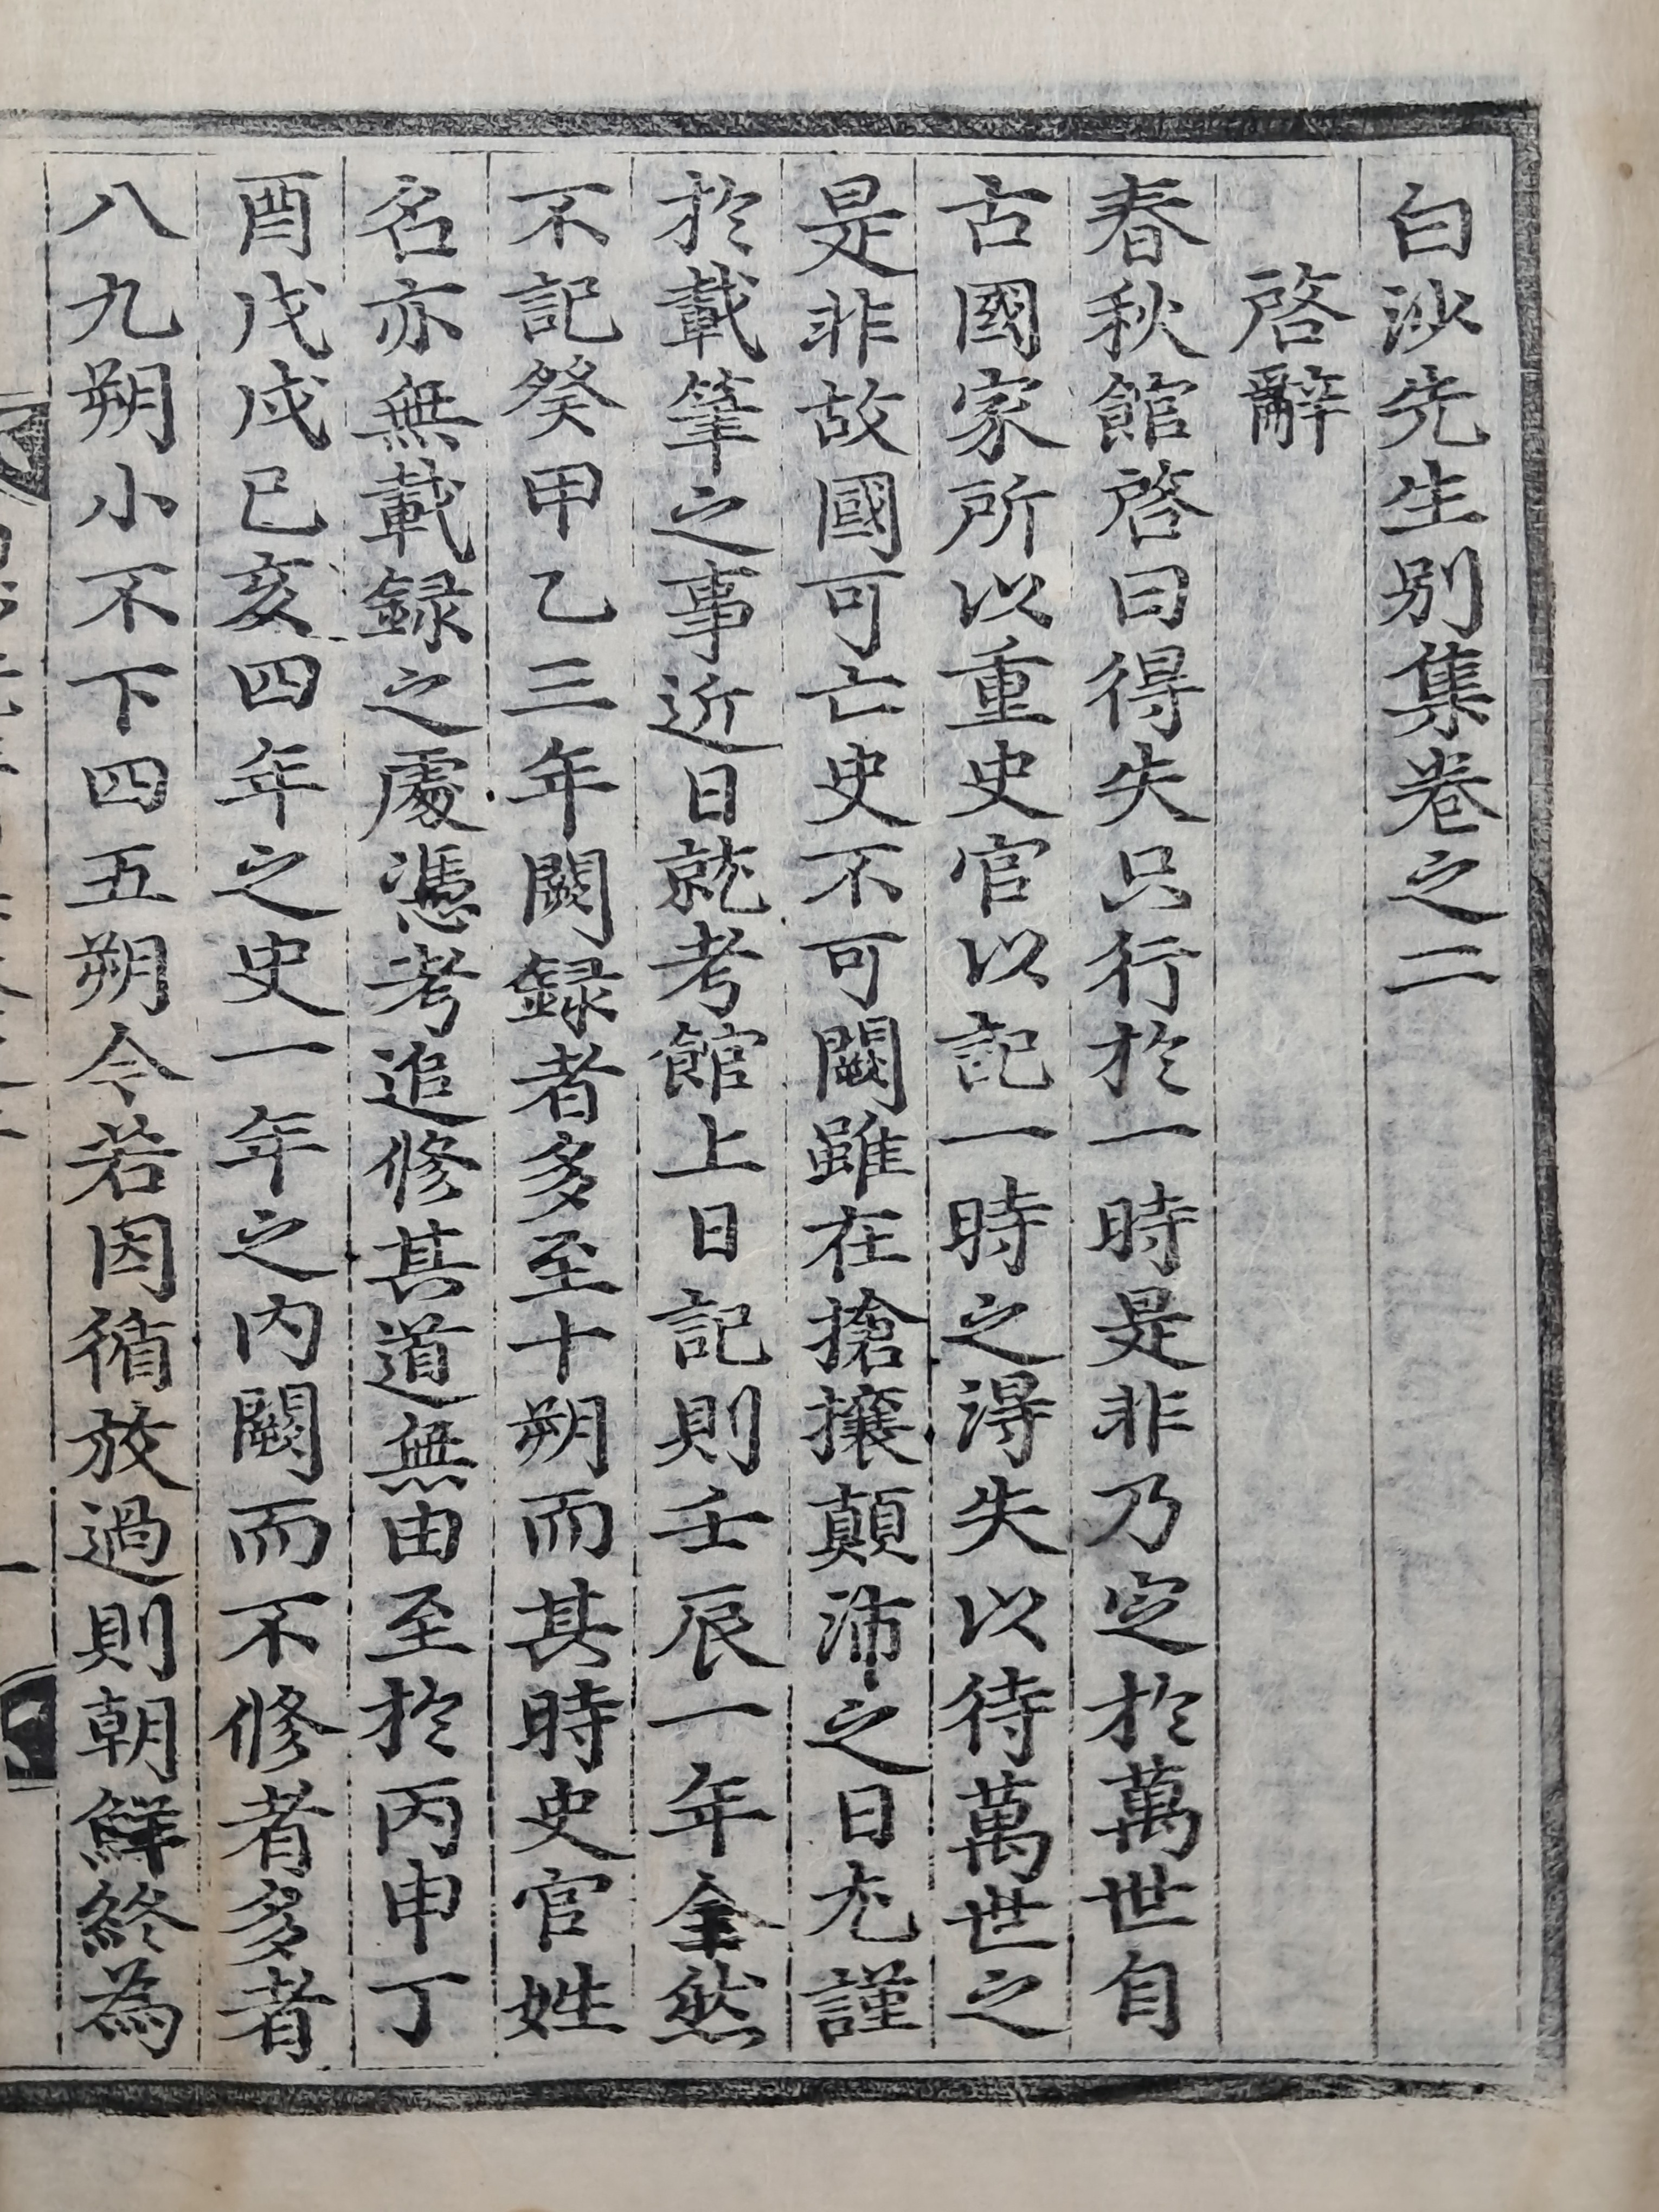 白沙先生別集卷之二
啓辭
春秋館啓曰得失只行於一時是非乃定於萬世自
古國家所以重史官以記一時之得失以待萬世之
是非故國可亡史不可闕雖在搶攘顚沛之日尤謹
於載筆之事近日就考館上日記則壬辰一年全然
不記癸甲乙三年闕録者多至十朔而其時史官姓
名亦無載録之處憑考追修其道無由至於丙申丁
酉戊戌己亥四年之史一年之內闕而不修者多者
八九朔小不下四五朔今若因循放過則朝鮮終爲